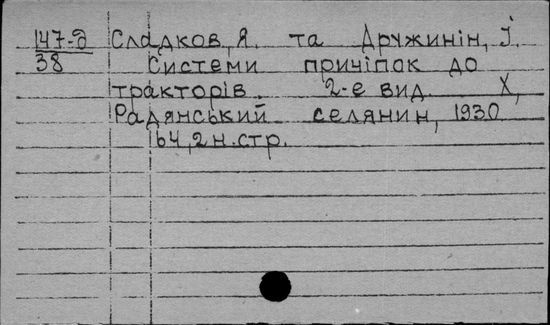 147-д Сладков, Я. та Дружинін, І.
38 Системи причіпок до
тракторів. 2-е вид. Х,
Радянський селянин, 1930
64, 2 н. стр.